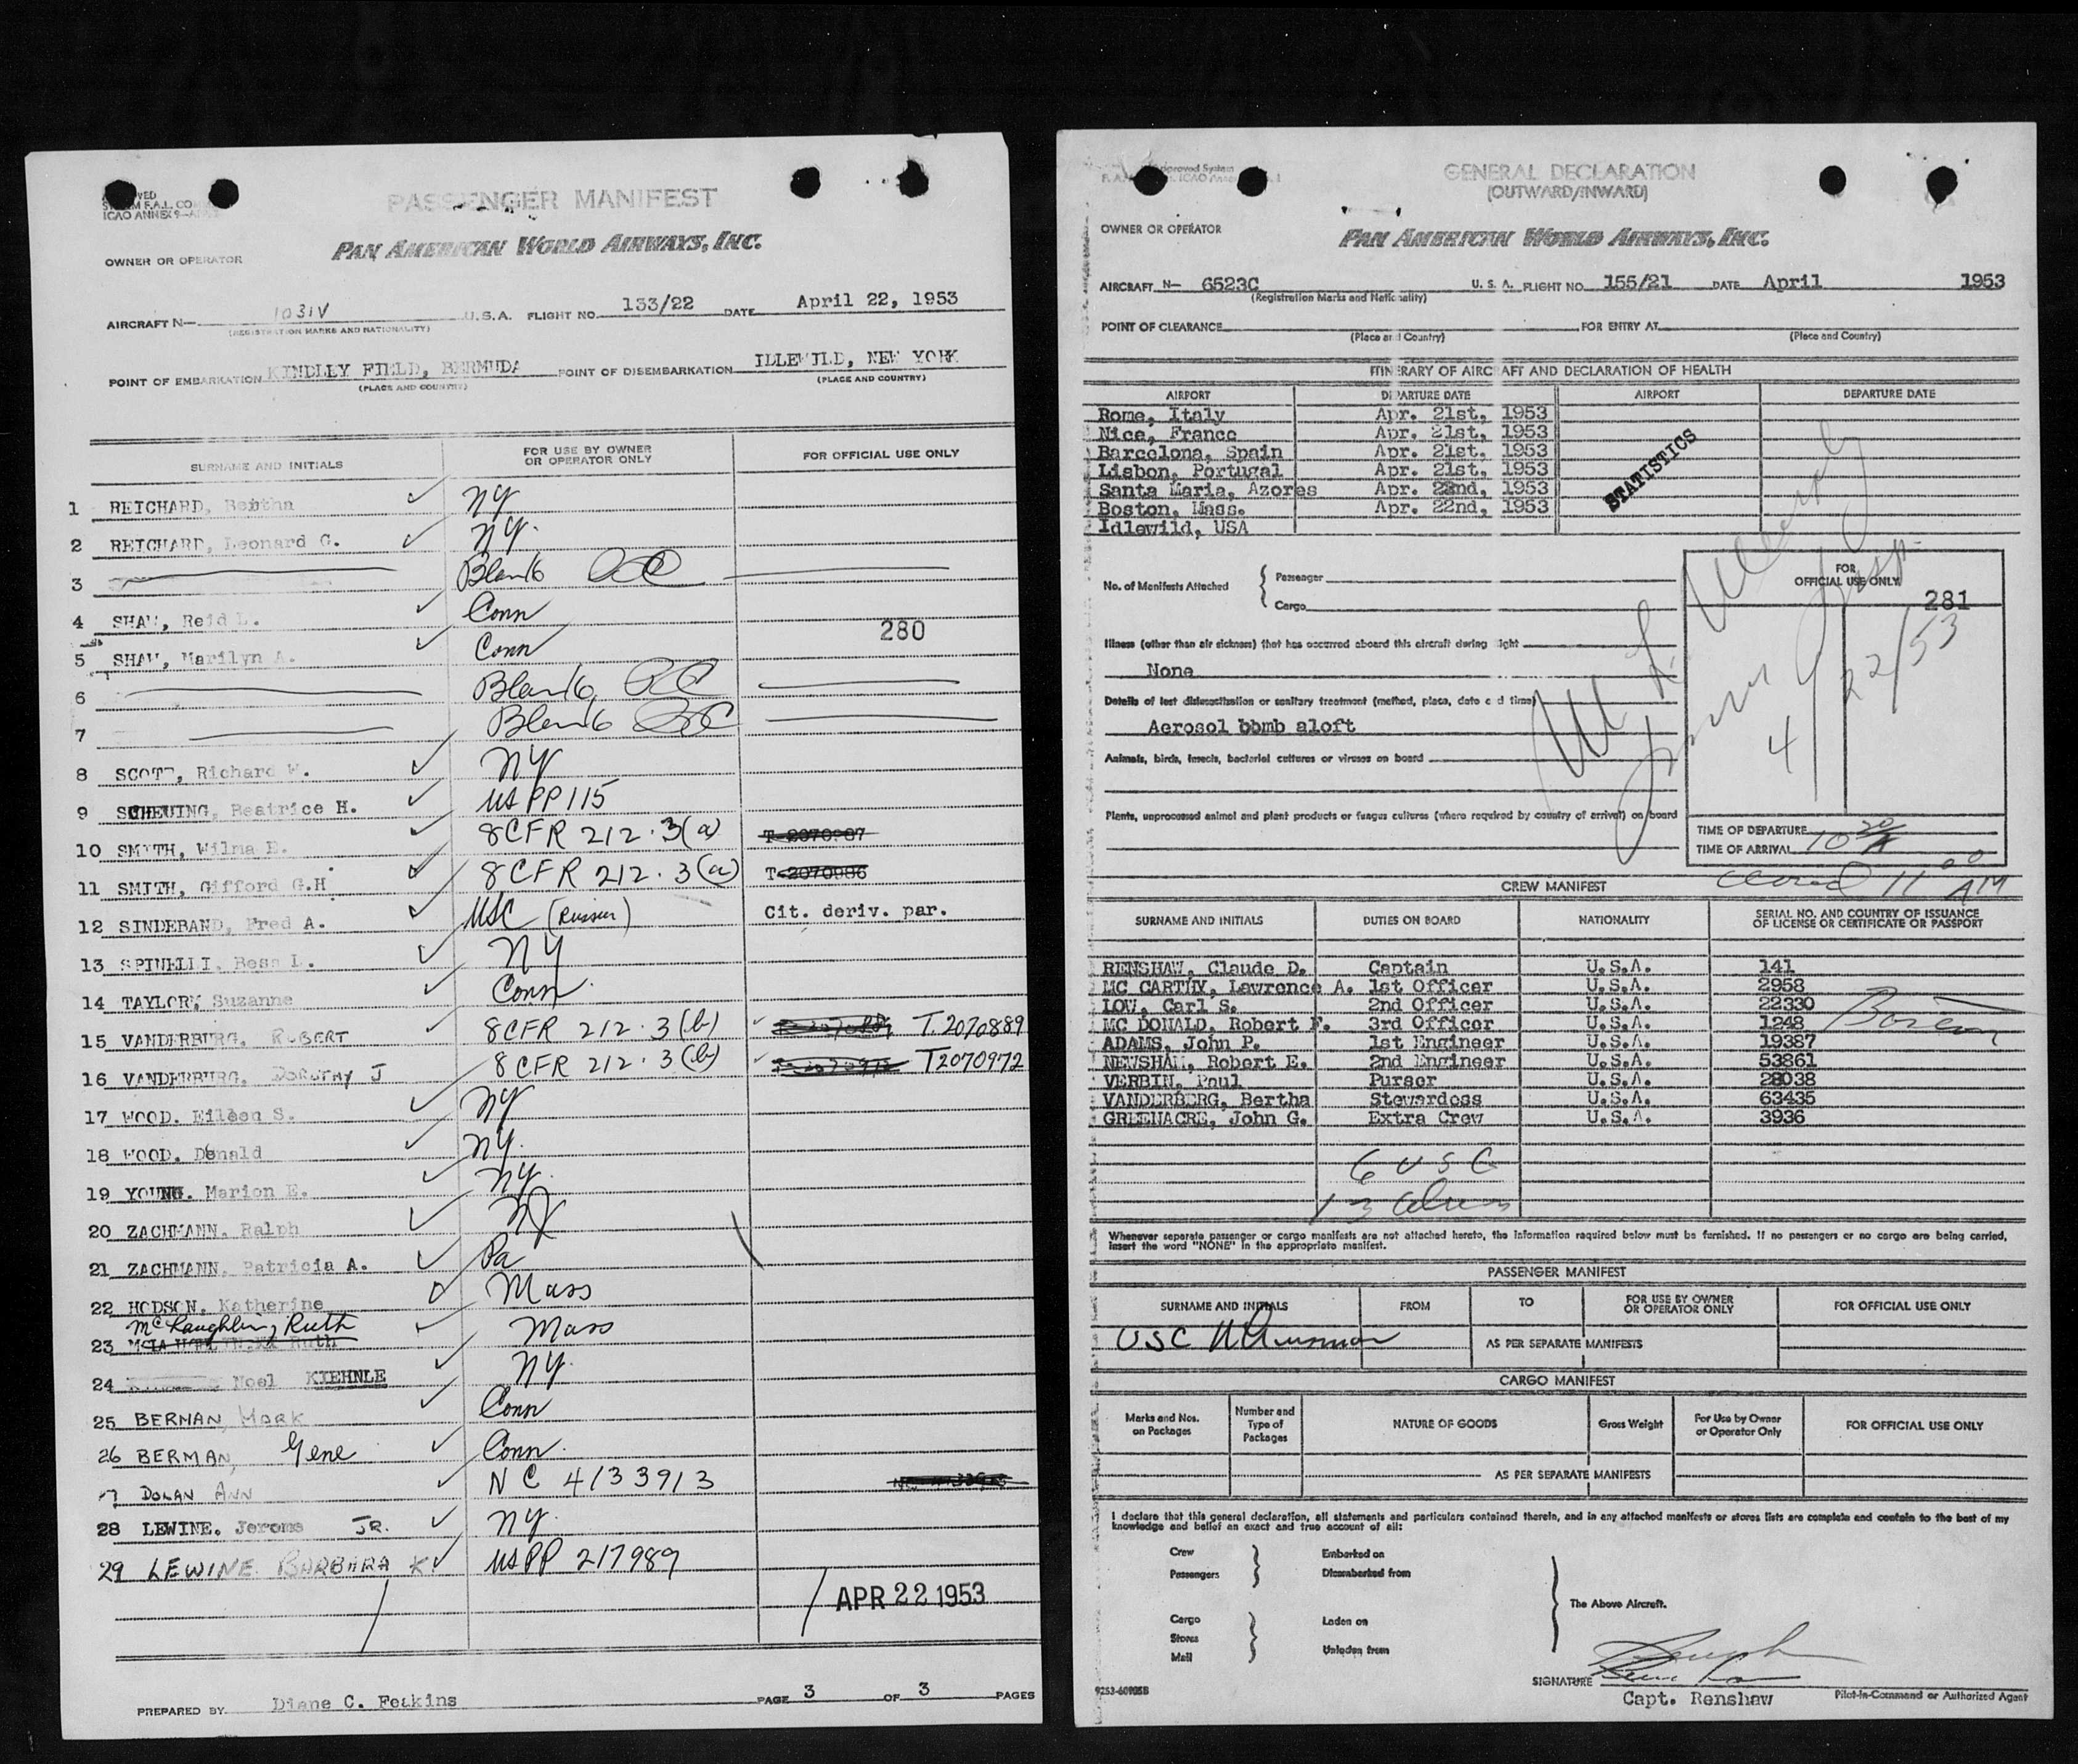 PASSENGER MANIFEST
ICAO ANNEX 9
PAN AMERICAN WORLD AIRWAYS, INC.
OWNER OR OPERATOR
AIRCRAFT N— 1031V U.S.A. FLIGHT NO. 133/22 DATE April 22, 1953
(REGISTRATION MARKS AND NATIONALITY)
POINT OF EMBARKATION KINDLLY FIELD, BERMUDA POINT OF DISEMBARKATION IDLEWILD, NEW YORK
(PLACE AND COUNTRY) (PLACE AND COUNTRY)
SURNAME AND INITIALS FOR USE BY OWNER OR OPERATOR ONLY FOR OFFICIAL USE ONLY
1 REICHARD, Bertha ✓ NY
2 REICHARD, Leonard G. ✓ NY.
3 Blank
4 SHAW, Reid L. ✓ Conn
280
5 SHAW, Marilyn A. ✓ Conn
6 Blank
7 Blank
8 SCOTT, Richard W. ✓ NY
9 SCHEUING, Beatrice H. ✓ US PP 115
10 SMITH, Wilma E. ✓ 8 CFR 212.3(a) T-2070987
11 SMITH, Gifford G.H ✓ 8 CFR 212.3(a) T-2070986
12 SINDEBAND, Fred A. ✓ USC (Russia) Cit. deriv. par.
13 SPINELLI, Bess L. ✓ NY
14 TAYLOR, Suzanne ✓ Conn.
15 VANDERBURG, ROBERT ✓ 8 CFR 212.3(b) T.2070889
16 VANDERBURG, DOROTHY J ✓ 8 CFR 212.3(b) T2070972
17 WOOD. Eileen S. ✓ NY
18 WOOD. Donald ✓ NY.
19 YOUNG. Marion E. ✓ NY.
20 ZACHMANN. Ralph ✓ NY
21 ZACHMANN. Patricia A. ✓ Pa
22 HODSON. Katherine ✓ Mass
McLaughlin, Ruth
23 Ruth ✓ Mass
24 Noel KIEHNLE ✓ NY.
25 BERMAN, MARK ✓ Conn
26 BERMAN, Gene ✓ Conn.
7 DOLAN ANN ✓ N C 4133913
28 LEWINE. Jerome JR. ✓ NY.
29 LEWINE BARBARA K. ✓ US PP 217989
APR 22 1953
PREPARED BY Diane C. Feakins PAGE 3 OF 3 PAGES
GENERAL DECLARATION
(OUTWARD/INWARD)
OWNER OR OPERATOR PAN AMERICAN WORLD AIRWAYS, INC.
AIRCRAFT N— 6523C U. S. A. FLIGHT NO. 155/21 DATE April 1953
(Registration Marks and Nationality)
POINT OF CLEARANCE FOR ENTRY AT
(Place and Country) (Place and Country)
ITINERARY OF AIRCRAFT AND DECLARATION OF HEALTH
AIRPORT DEPARTURE DATE AIRPORT DEPARTURE DATE
Rome, Italy Apr. 21st, 1953
Nice, France Apr. 21st, 1953
Barcelona, Spain Apr. 21st, 1953
Lisbon, Portugal Apr. 21st, 1953
Santa Maria, Azores Apr. 22nd, 1953
Boston, Mass. Apr. 22nd, 1953
Idlewild, USA
STATISTICS
No. of Manifests Attached { Passenger
Cargo
FOR OFFICIAL USE ONLY
281
4/22/53
Illness (other than air sickness) that has occurred aboard this aircraft during flight
None
Details of last disinsectization or sanitary treatment (method, place, date and time)
Aerosol bomb aloft
Animals, birds, insects, bacterial cultures or viruses on board
Plants, unprocessed animal and plant products or fungus cultures (where required by country of arrival) on board
TIME OF DEPARTURE
TIME OF ARRIVAL 10 20 A
11 00 AM
CREW MANIFEST
SURNAME AND INITIALS DUTIES ON BOARD NATIONALITY SERIAL NO. AND COUNTRY OF ISSUANCE OF LICENSE OR CERTIFICATE OR PASSPORT
RENSHAW, Claude D. Captain U.S.A. 141
MC CARTHY, Lawrence A. 1st Officer U.S.A. 2958
LOW, Carl S. 2nd Officer U.S.A. 22330
MC DONALD, Robert F. 3rd Officer U.S.A. 1248 Boston
ADAMS, John P. 1st Engineer U.S.A. 19387
NEWSHAM, Robert E. 2nd Engineer U.S.A. 53861
VERBIN, Paul Purser U.S.A. 28038
VANDERBERG, Bertha Stewardess U.S.A. 63435
GREENACRE, John G. Extra Crew U.S.A. 3936
6 USC
13 Aliens
Whenever separate passenger or cargo manifests are not attached hereto, the information required below must be furnished. If no passengers or no cargo are being carried,
insert the word "NONE" in the appropriate manifest.
PASSENGER MANIFEST
SURNAME AND INITIALS FROM TO FOR USE BY OWNER OR OPERATOR ONLY FOR OFFICIAL USE ONLY
USC
AS PER SEPARATE MANIFESTS
CARGO MANIFEST
Marks and Nos. on Packages Number and Type of Packages NATURE OF GOODS Gross Weight For Use by Owner or Operator Only FOR OFFICIAL USE ONLY
AS PER SEPARATE MANIFESTS
I declare that this general declaration, all statements and particulars contained therein, and in any attached manifests or stores lists are complete and contain to the best of my
knowledge and belief an exact and true account of all:
Crew Embarked on
Passengers Disembarked from
The Above Aircraft.
Cargo Laden on
Stores
Mail Unladen from
SIGNATURE
Capt. Renshaw Pilot-in-Command or Authorized Agent